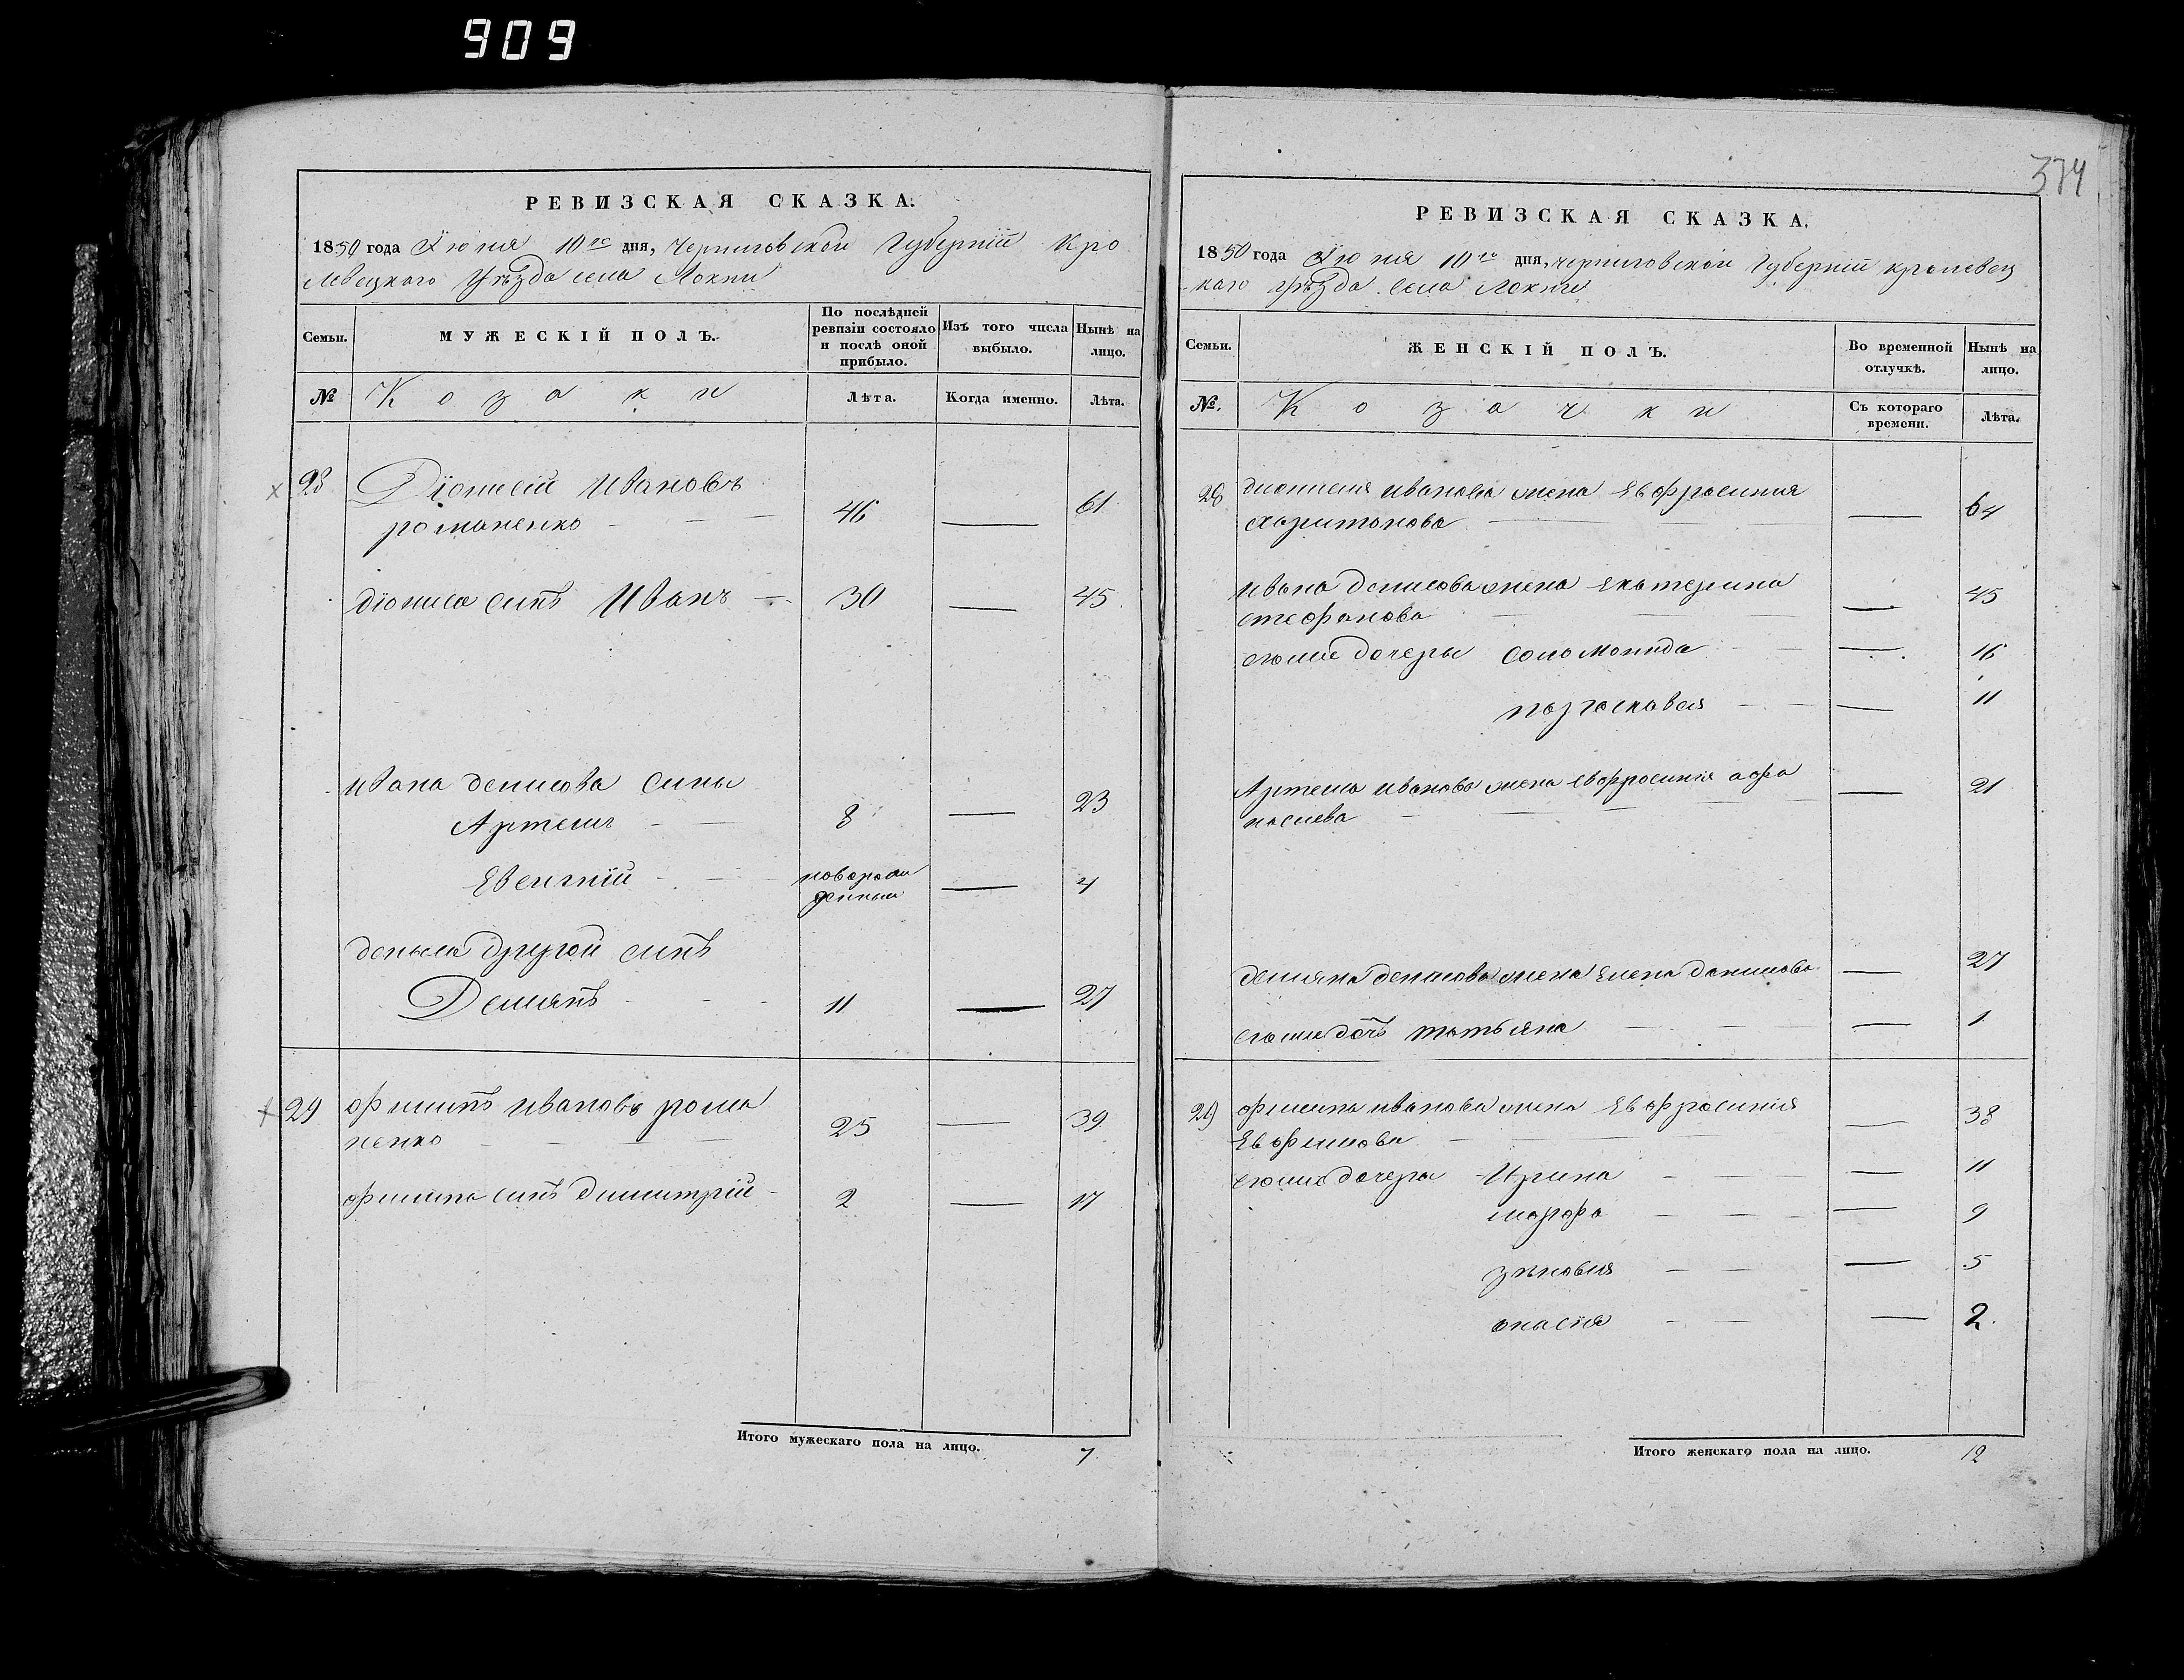 909
374
РЕВИЗСКАЯ СКАЗКА.
1850 года Іюня 10го дня, Черниговской Губерніи Кро
левецкаго Уѣзда села Локни
Семьи.
МУЖЕСКІЙ ПОЛЪ.
По послѣдней ревизіи состояло и послѣ оной прибыло.
Изъ того числа выбыло.
Нынѣ на лицо.
№
Козаки
Лѣта.
Когда именно.
Лѣта.
28 Діонисій Ивановъ
романенко — — 46 — 61
діониса синъ Иванъ — 30 — 45
ивана денисова сины
Артемъ — — 8 — 23
Евгений — — новорож
денный — 4
дениса другой синъ
Демянъ — — 11 — 27
29 филипъ ивановъ рома
ненко — — — 25 — 39
филипа синъ димитрій — 2 — 17
Итого мужескаго пола на лицо. 7
РЕВИЗСКАЯ СКАЗКА.
1850 года Іюня 10го дня, черниговской Губерніи кролевец
каго уѣзда села Локни
Семьи.
ЖЕНСКІЙ ПОЛЪ.
Во временной отлучкѣ.
Нынѣ на лицо.
№.
Козачки
Съ котораго времени.
Лѣта.
28 дионисия иванова жена Евфросиния
харитонова — — 64
ивана денисова жена Екатерина
стефанова — — — 45
его же дочеры соломонида — — 16
параскавея — — 11
Артема иванова жена евфросинія афа
насиева — — — 21
демяна денисова жена Елена данилова — 27
его же дочъ татьяна — — — 1
29 филипа иванова жена Евфросинія
Евфимова — — — 38
его же дочеры Ирина — — — 11
марфа — — — 9
зѣновия — — — 5
анасия — — — 2.
Итого женскаго пола на лицо. 12